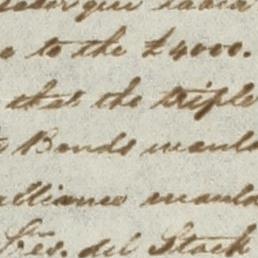 to the £4000.
that the triple
Bonds would
alliance would
del Stock